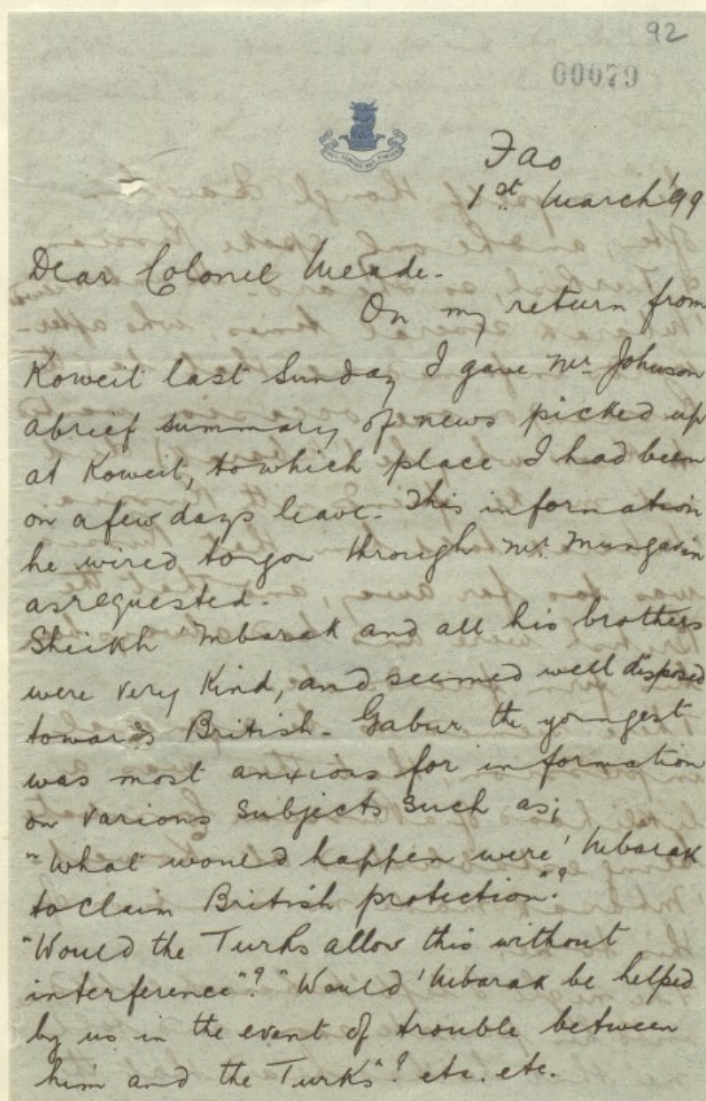 92
00079
Fao
1st March '99
Dear Colonel Meade.
On my return from
Koweit last Sunday I gave Mr Johnson
a brief summary of news picked up
at Koweit, to which place I had been
on a few days leave. This information
he wired to you through Mr. Mungavin
as requested.
Sheikh 'Mbarak and all his brothers
were very kind, and seemed well disposed
towards British. Gabur the youngest
was most anxious for information
on various subjects such as;
"What would happen were 'Mbarak
to claim British protection"?
"Would the Turks allow this without
interference"? "Would 'Mbarak be helped
by us in the event of trouble between
him and the Turks"? etc. etc.